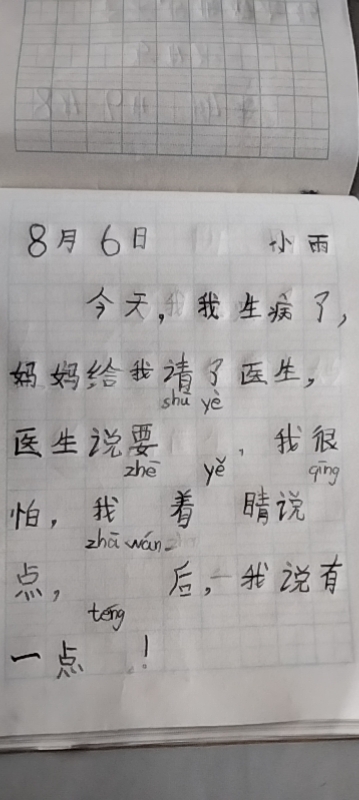 8月6日 小雨
今天,我生病了,
妈妈给我请了医生,
shū yè
医生说要 ,我很
zhē yě qing
怕,我 着 睛说
zhā wán
点, 后,我说有
téng
一点 !